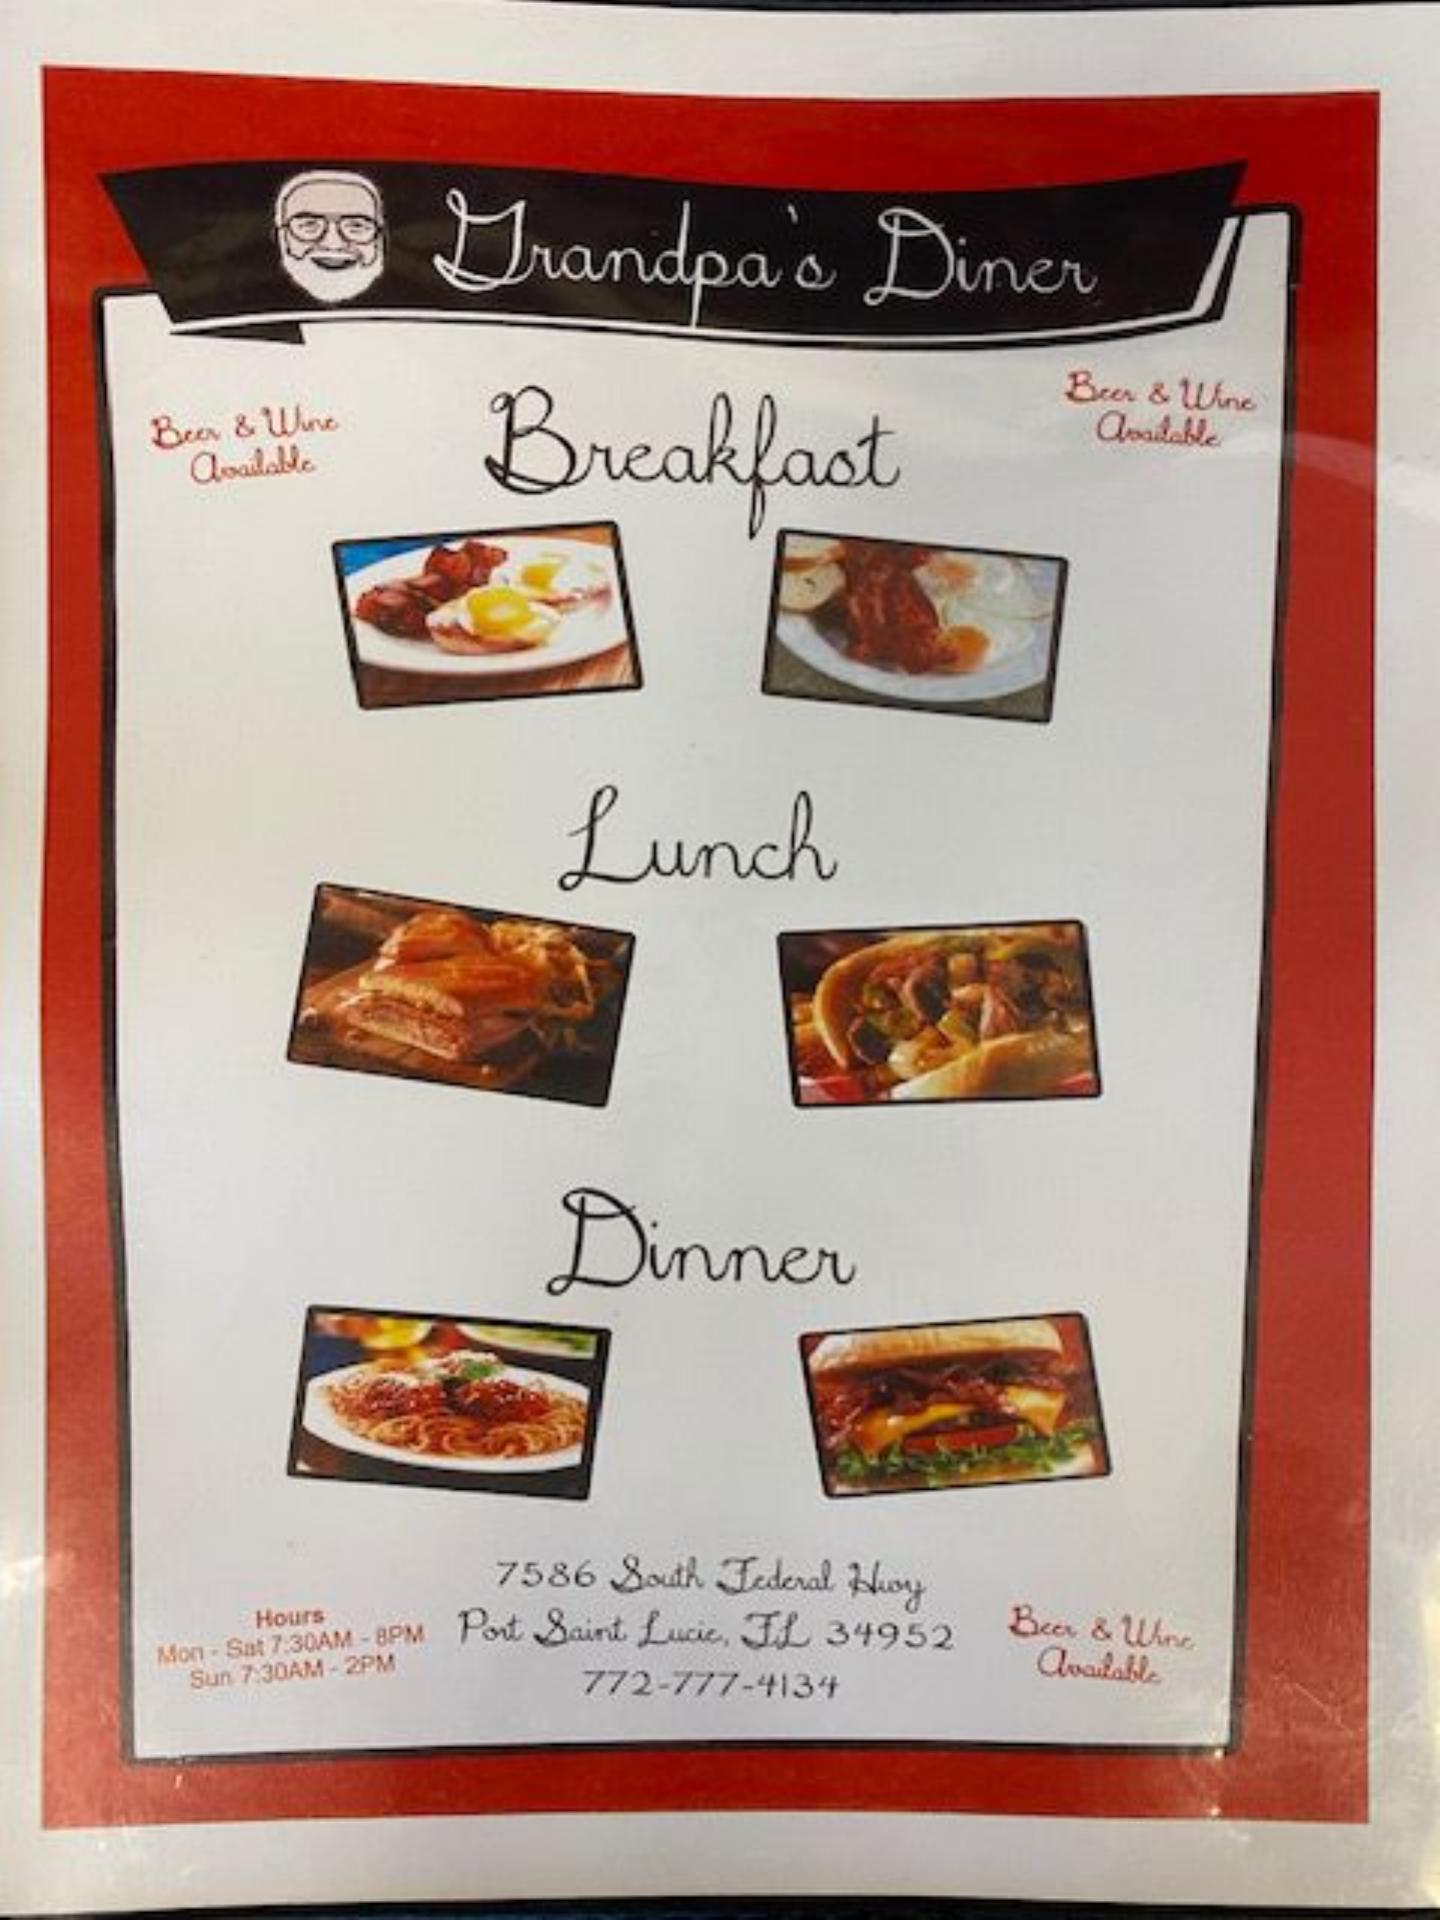 Grandpa's Diner
Beer & Wine
Available
Breakfast
Beer & Wine
Available
Lunch
Dinner
7586 South Federal Hwy
Port Saint Lucie, FL 34952
772-777-4134
Hours
Mon - Sat 7:30AM - 8PM
Sun 7:30AM - 2PM
Beer & Wine
Available